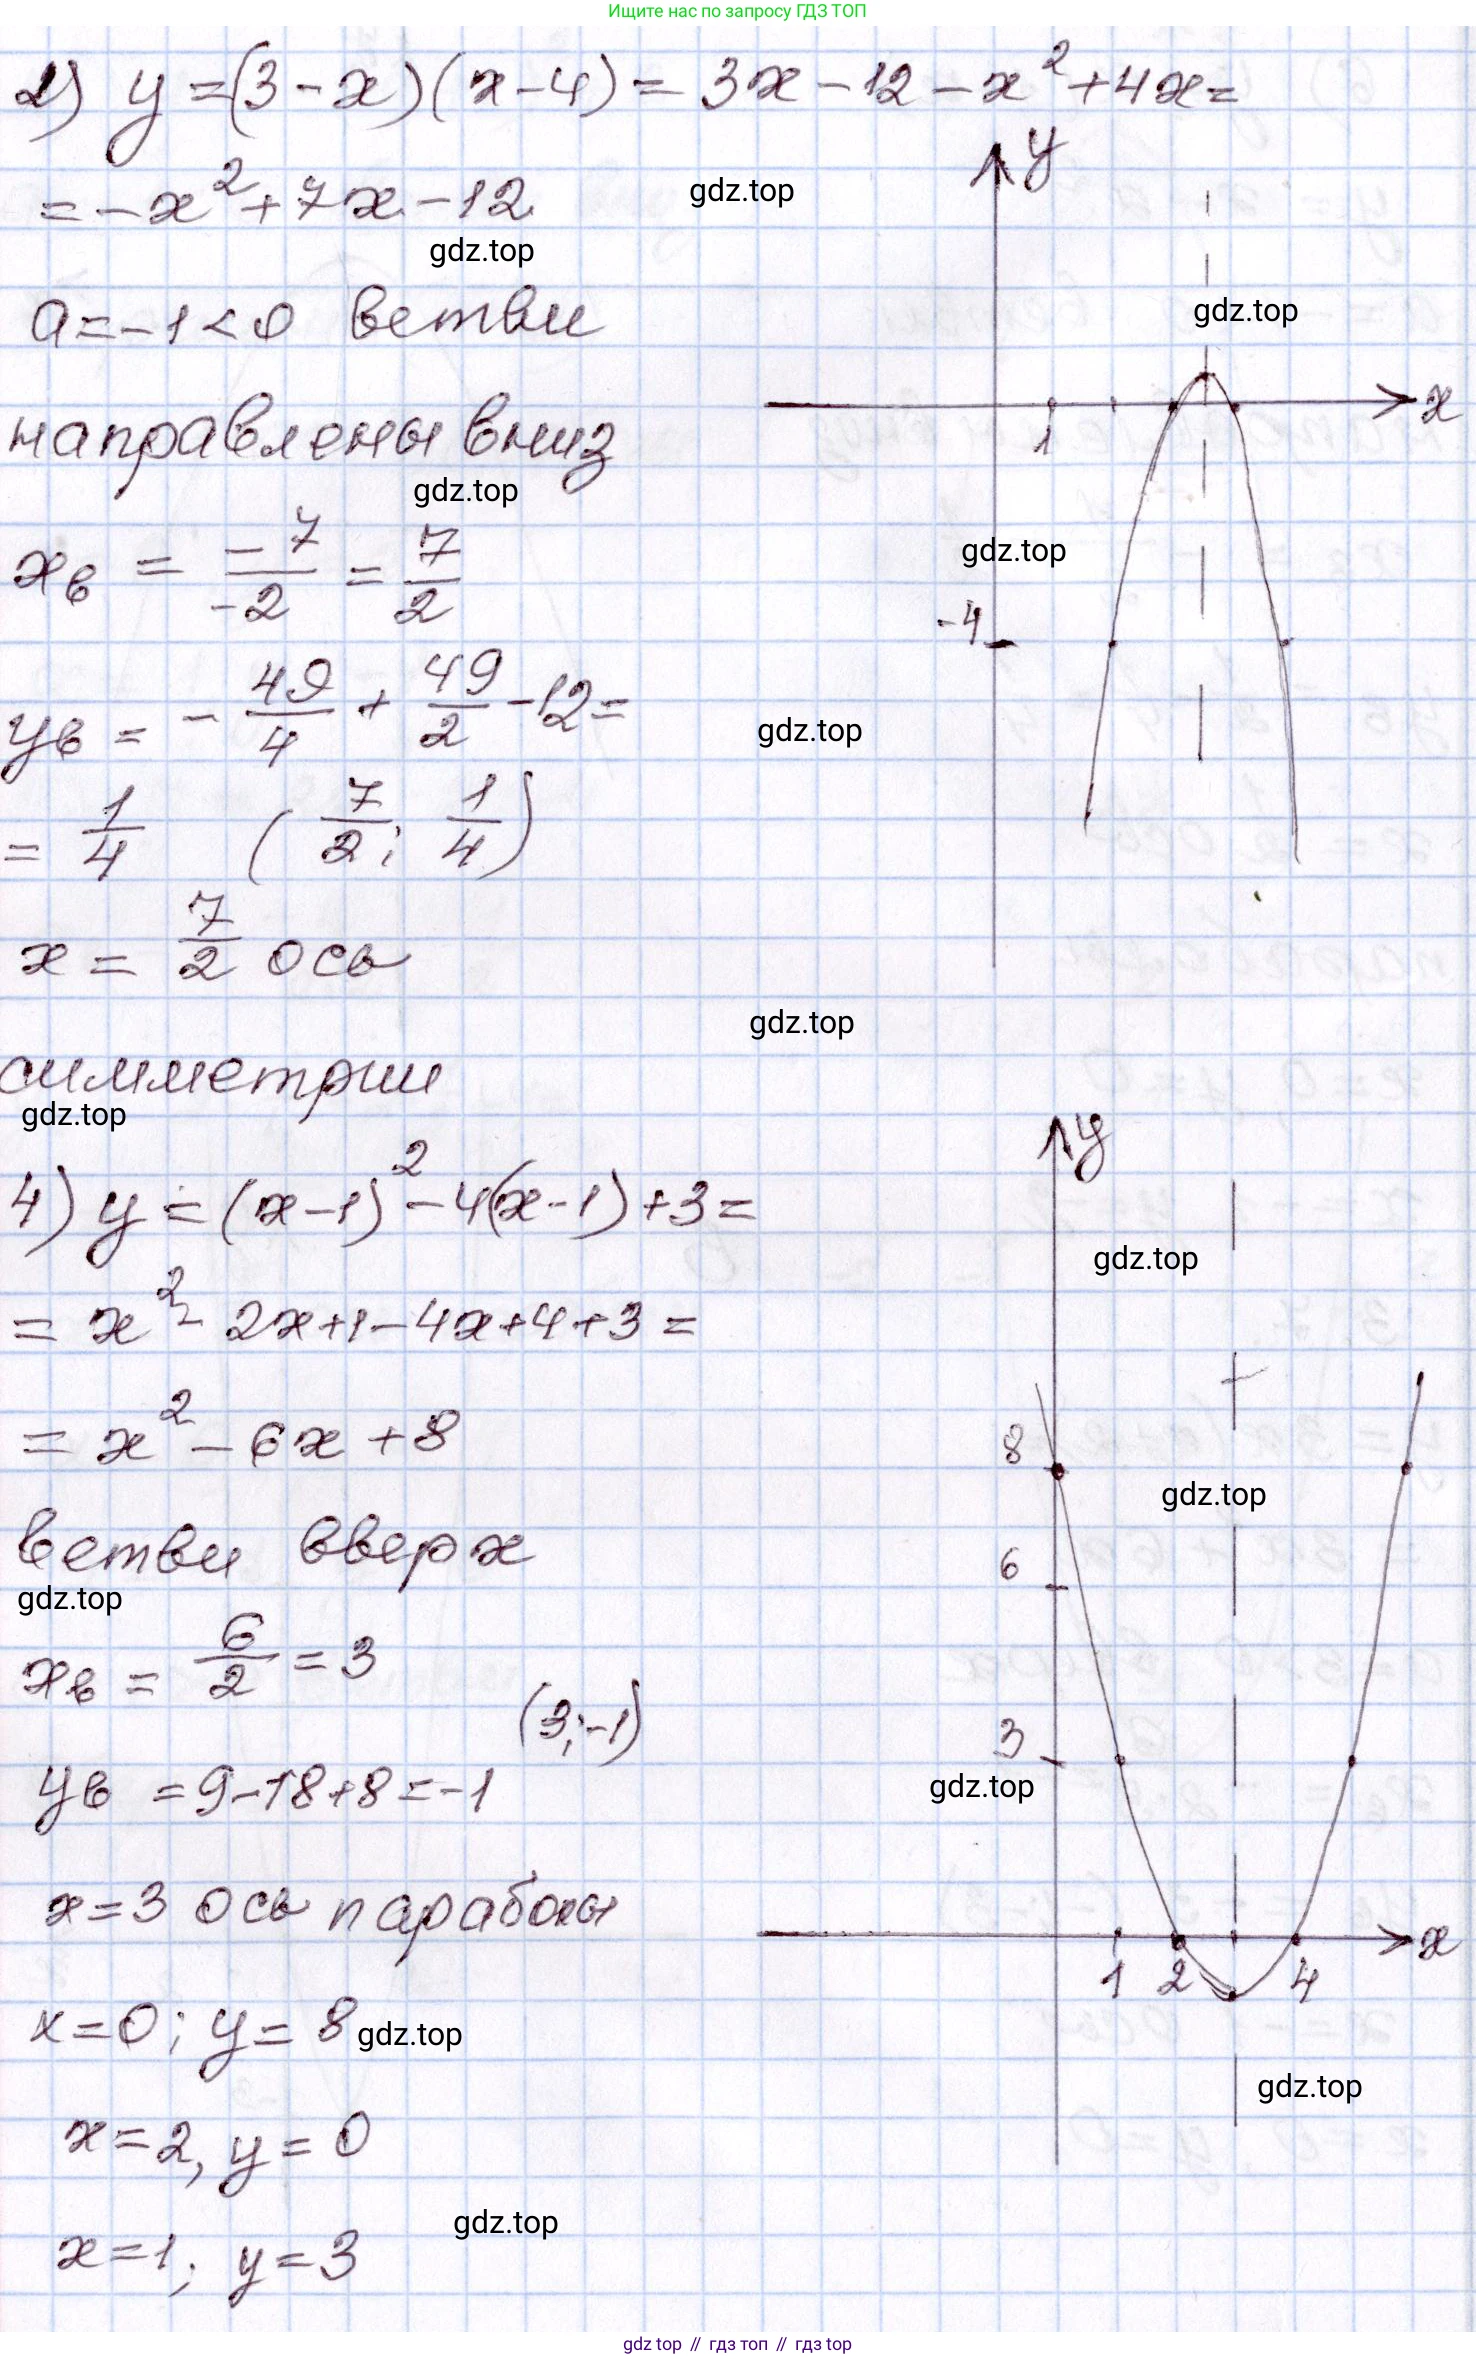 Ищите нас по запросу ГДЗ ТОП
2) y = (3 - x)(x - 4) = 3x - 12 - x² + 4x =
= - x² + 7x - 12
gdz.top
gdz.top
a = -1 < 0 ветви
направлены вниз
gdz.top
xв = -7/-2 = 7/2
yв = - 49/4 + 49/2 - 12 =
= 1/4 (7/2; 1/4)
x = 7/2 ось
симметрии
gdz.top
y
gdz.top
x
1
gdz.top
-4
gdz.top
gdz.top
4) y = (x - 1)² - 4(x - 1) + 3 =
= x² - 2x + 1 - 4x + 4 + 3 =
= x² - 6x + 8
ветви вверх
gdz.top
xв = 6/2 = 3
(3; -1)
yв = 9 - 18 + 8 = -1
x = 3 ось параболы
x = 0; y = 8
gdz.top
x = 2, y = 0
gdz.top
x = 1; y = 3
y
gdz.top
8
gdz.top
6
3
gdz.top
x
1 2 4
gdz.top
gdz top // гдз топ // гдз top